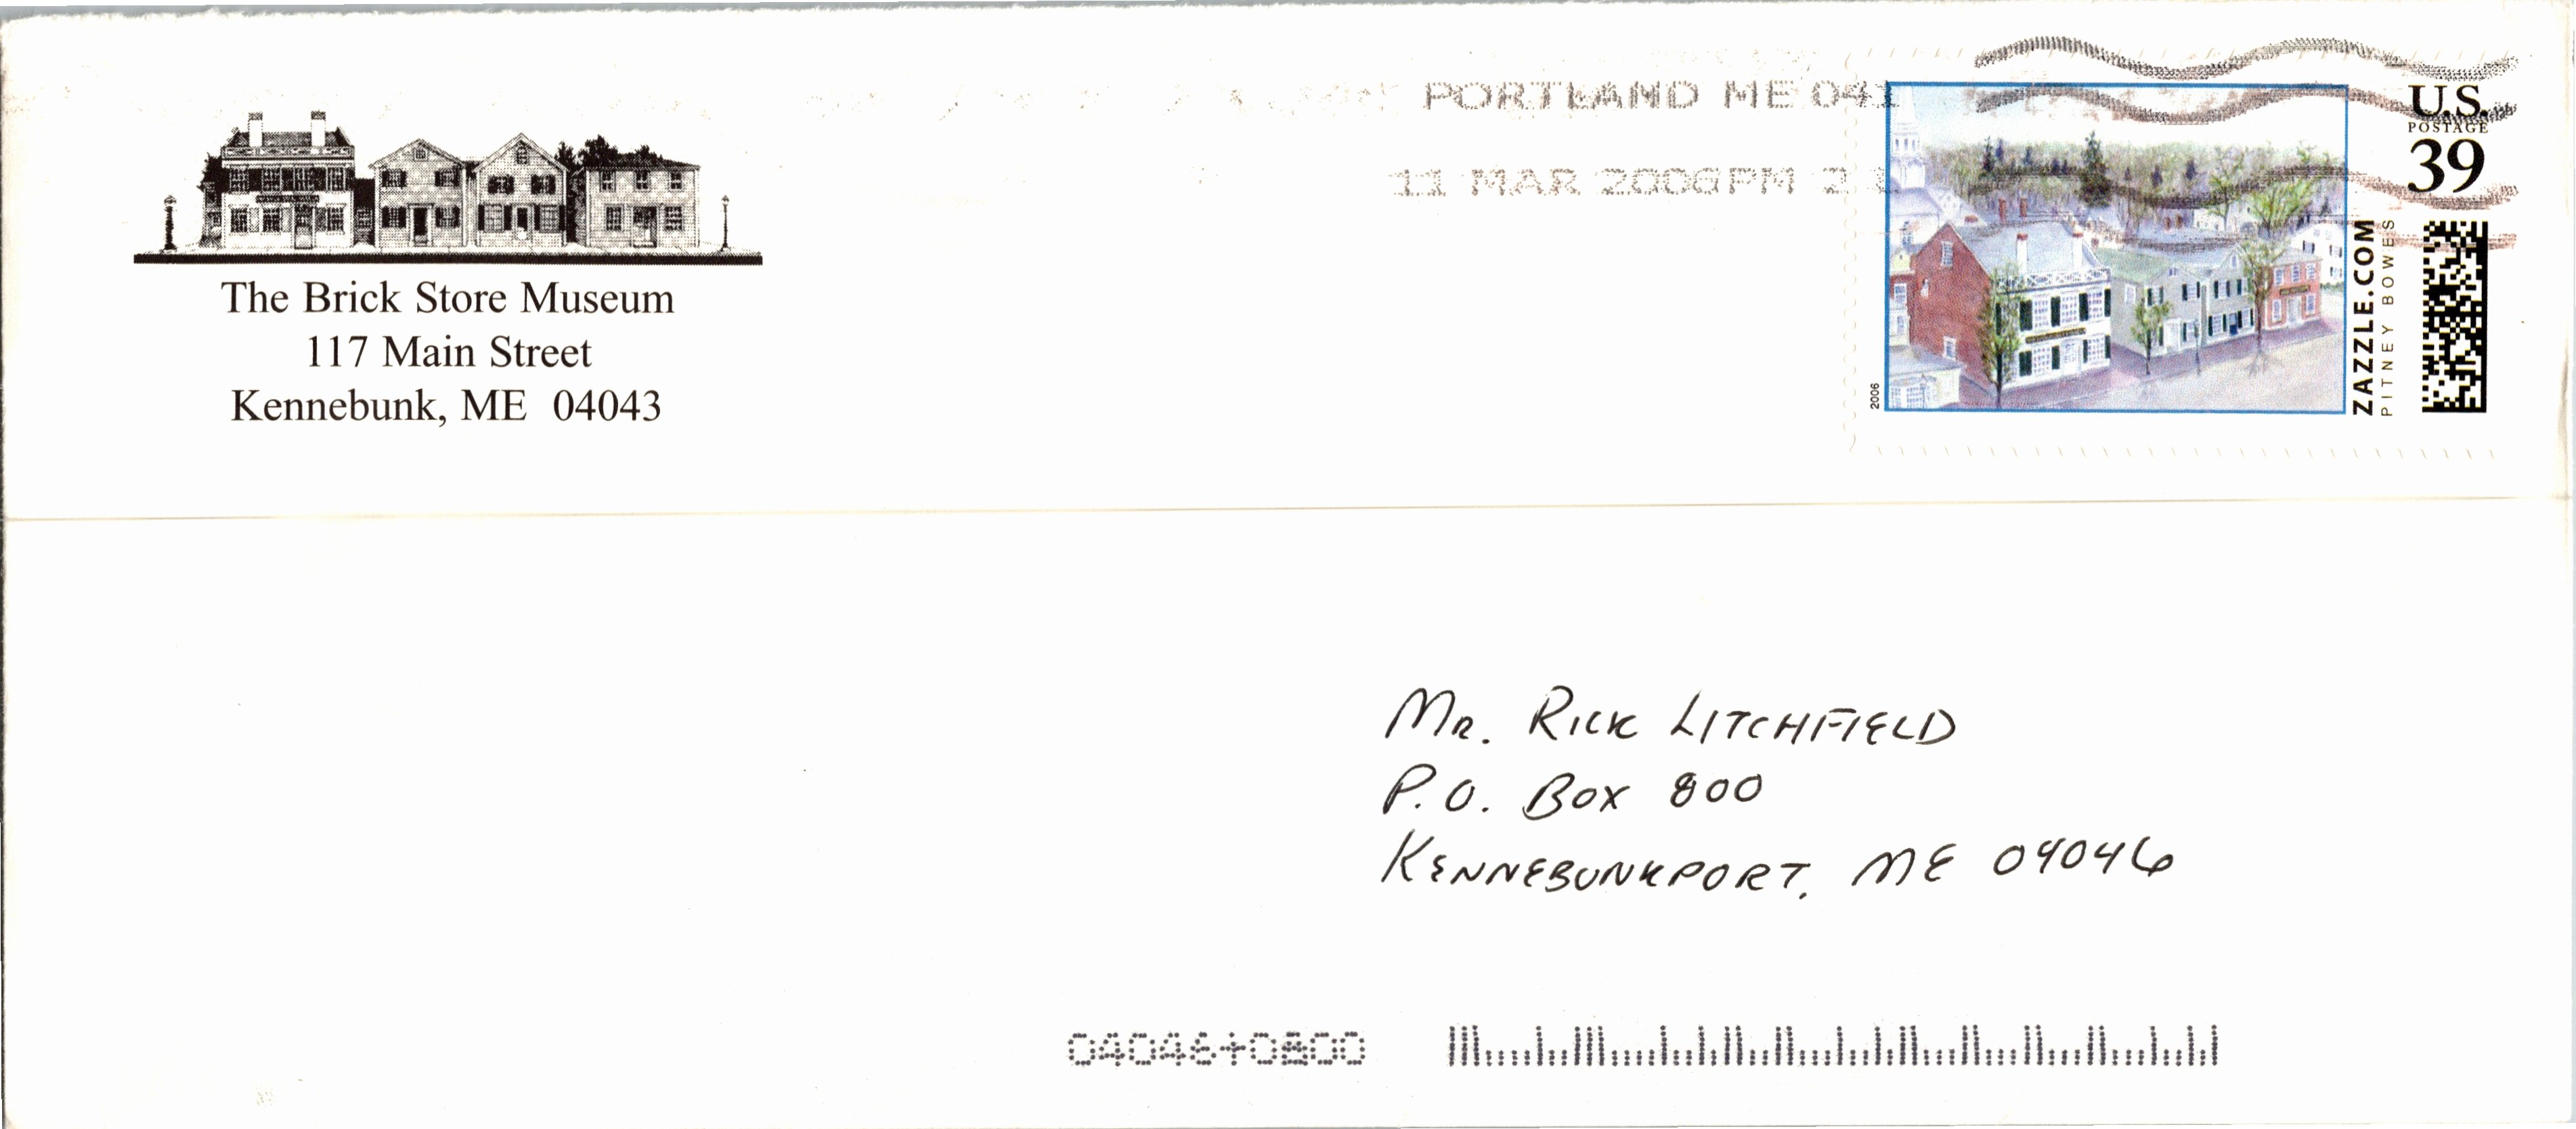 The Brick Store Museum
117 Main Street
Kennebunk, ME 04043
PORTLAND ME 041
11 MAR 2006 PM
U.S.
POSTAGE
39
ZAZZLE.COM
PITNEY BOWES
2006
MR. RICK LITCHFIELD
P.O. BOX 800
KENNEBUNKPORT, ME 04046
04046+0800